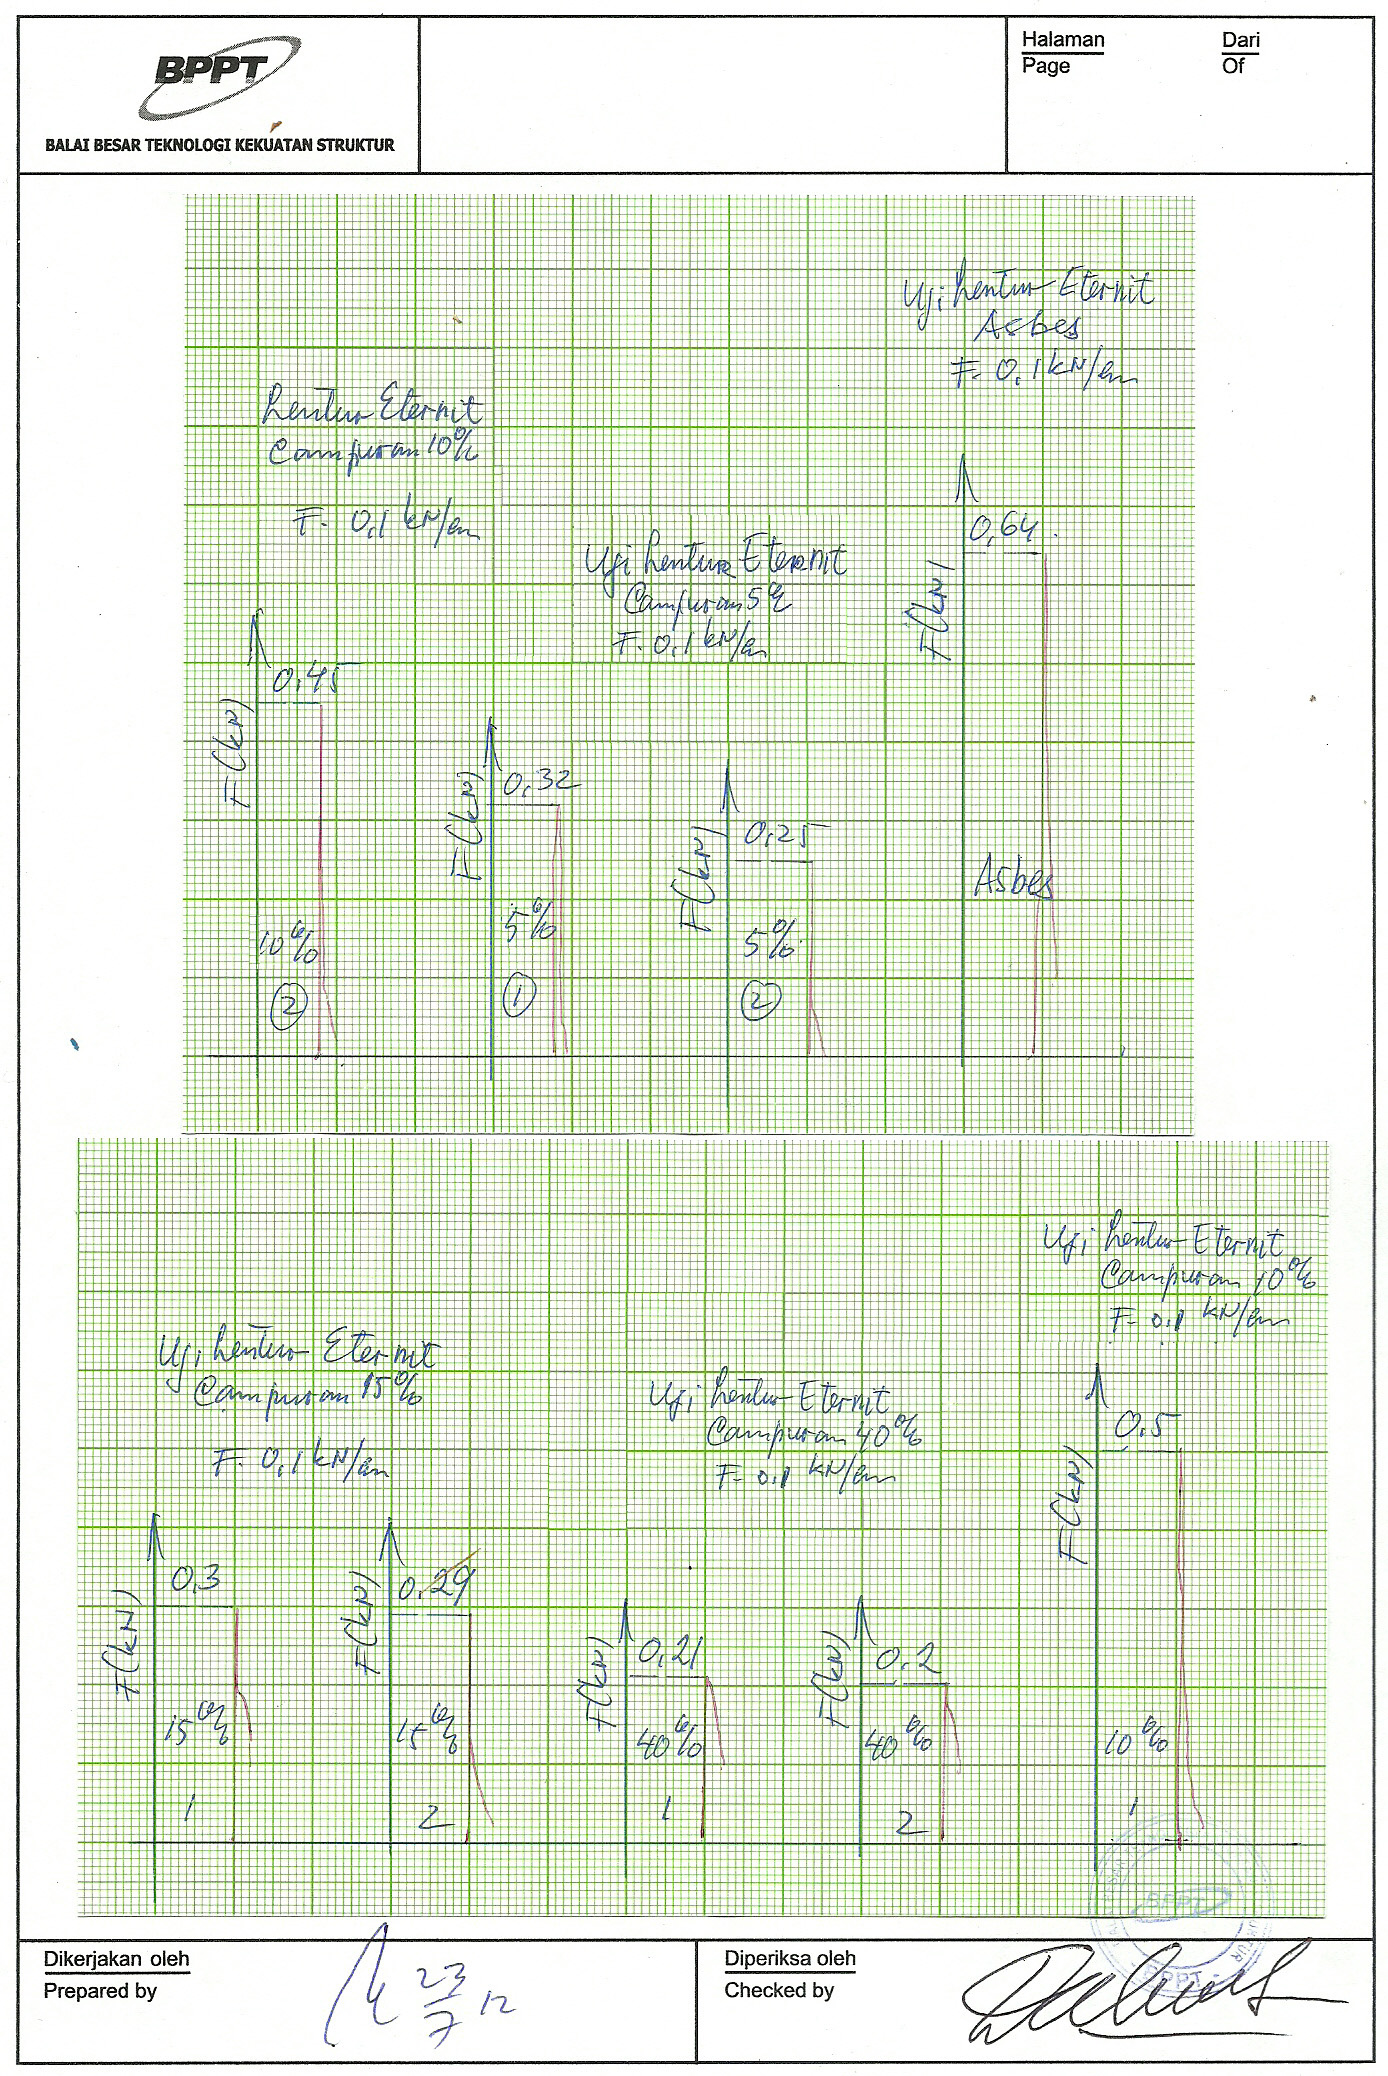 BPPT
BALAI BESAR TEKNOLOGI KEKUATAN STRUKTUR
Halaman
Page
Dari
Of
Uji Lentur Eternit
Asbes
F. 0,1 kN/cm
Lentur Eternit
Campuran 10%
F. 0,1 kN/cm
Uji Lentur Eternit
Campuran 5%
F. 0,1 kN/cm
0,45
F(kN)
10%
2
0,32
F(kN)
5%
1
0,25
F(kN)
5%
2
0,64
F(kN)
Asbes
Uji Lentur Eternit
Campuran 10%
F- 0,1 kN/cm
Uji Lentur Eternit
Campuran 15%
F. 0,1 kN/cm
Uji Lentur Eternit
Campuran 40%
F- 0,1 kN/cm
0,3
F(kN)
15%
1
0,29
F(kN)
15%
2
0,21
F(kN)
40%
1
0,2
F(kN)
40%
2
0,5
F(kN)
10%
1
BPPT
BPPT
Dikerjakan oleh
Prepared by
23
7
12
Diperiksa oleh
Checked by